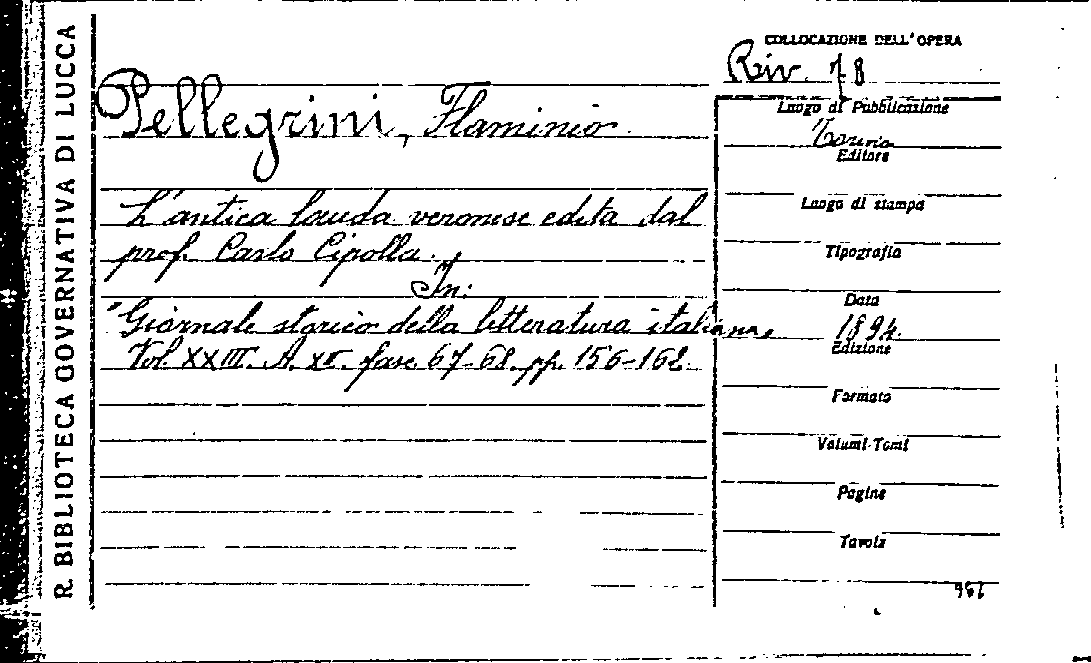 R. BIBLIOTECA GOVERNATIVA DI LUCCA
Pellegrini, Flaminio
L'antica lauda veronese edita dal
prof. Carlo Cipolla.
In:
"Giornale storico della letteratura italiana,
Vol. XXIII. A. XII. fasc. 67-68. pp. 156-162.
COLLOCAZIONE DELL'OPERA
Riv. 78
Luogo di Pubblicazione
Torino
Editore
Luogo di stampa
Tipografia
Data
1894.
Edizione
Formato
Volumi-Tomi
Pagine
Tavole